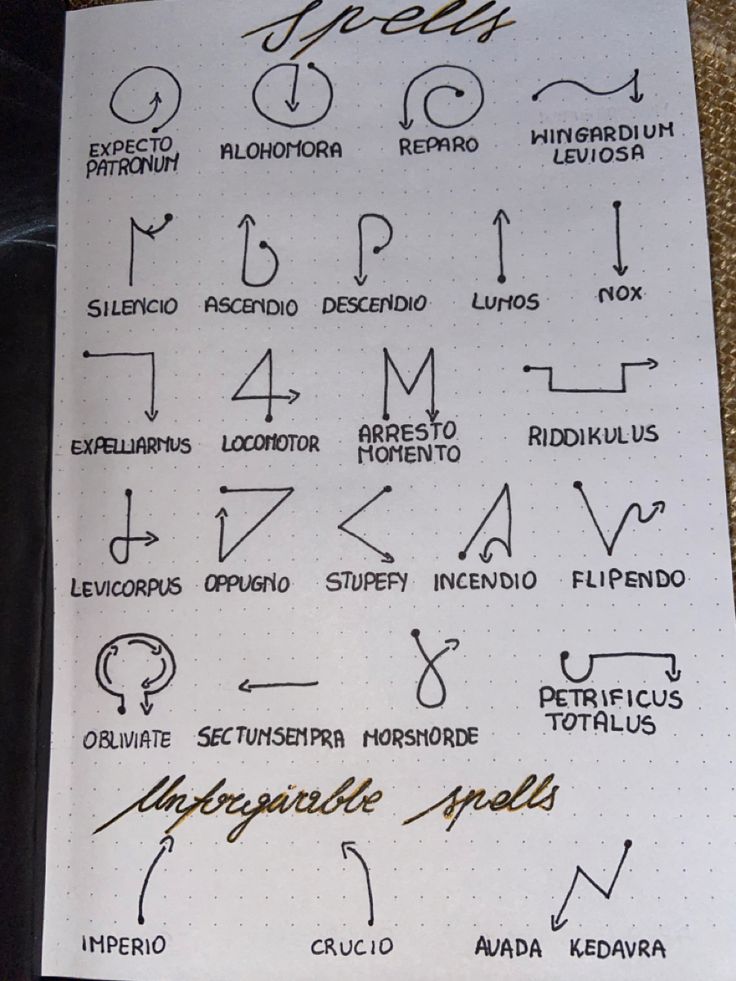 Spells
EXPECTO PATRONUM
ALOHOMORA
REPARO
WINGARDIUM LEVIOSA
SILENCIO
ASCENDIO
DESCENDIO
LUMOS
NOX
EXPELLIARMUS
LOCOMOTOR
ARRESTO MOMENTO
RIDDIKULUS
LEVICORPUS
OPPUGNO
STUPEFY
INCENDIO
FLIPENDO
OBLIVIATE
SECTUMSEMPRA
MORSMORDE
PETRIFICUS TOTALUS
Unforgivable spells
IMPERIO
CRUCIO
AVADA KEDAVRA